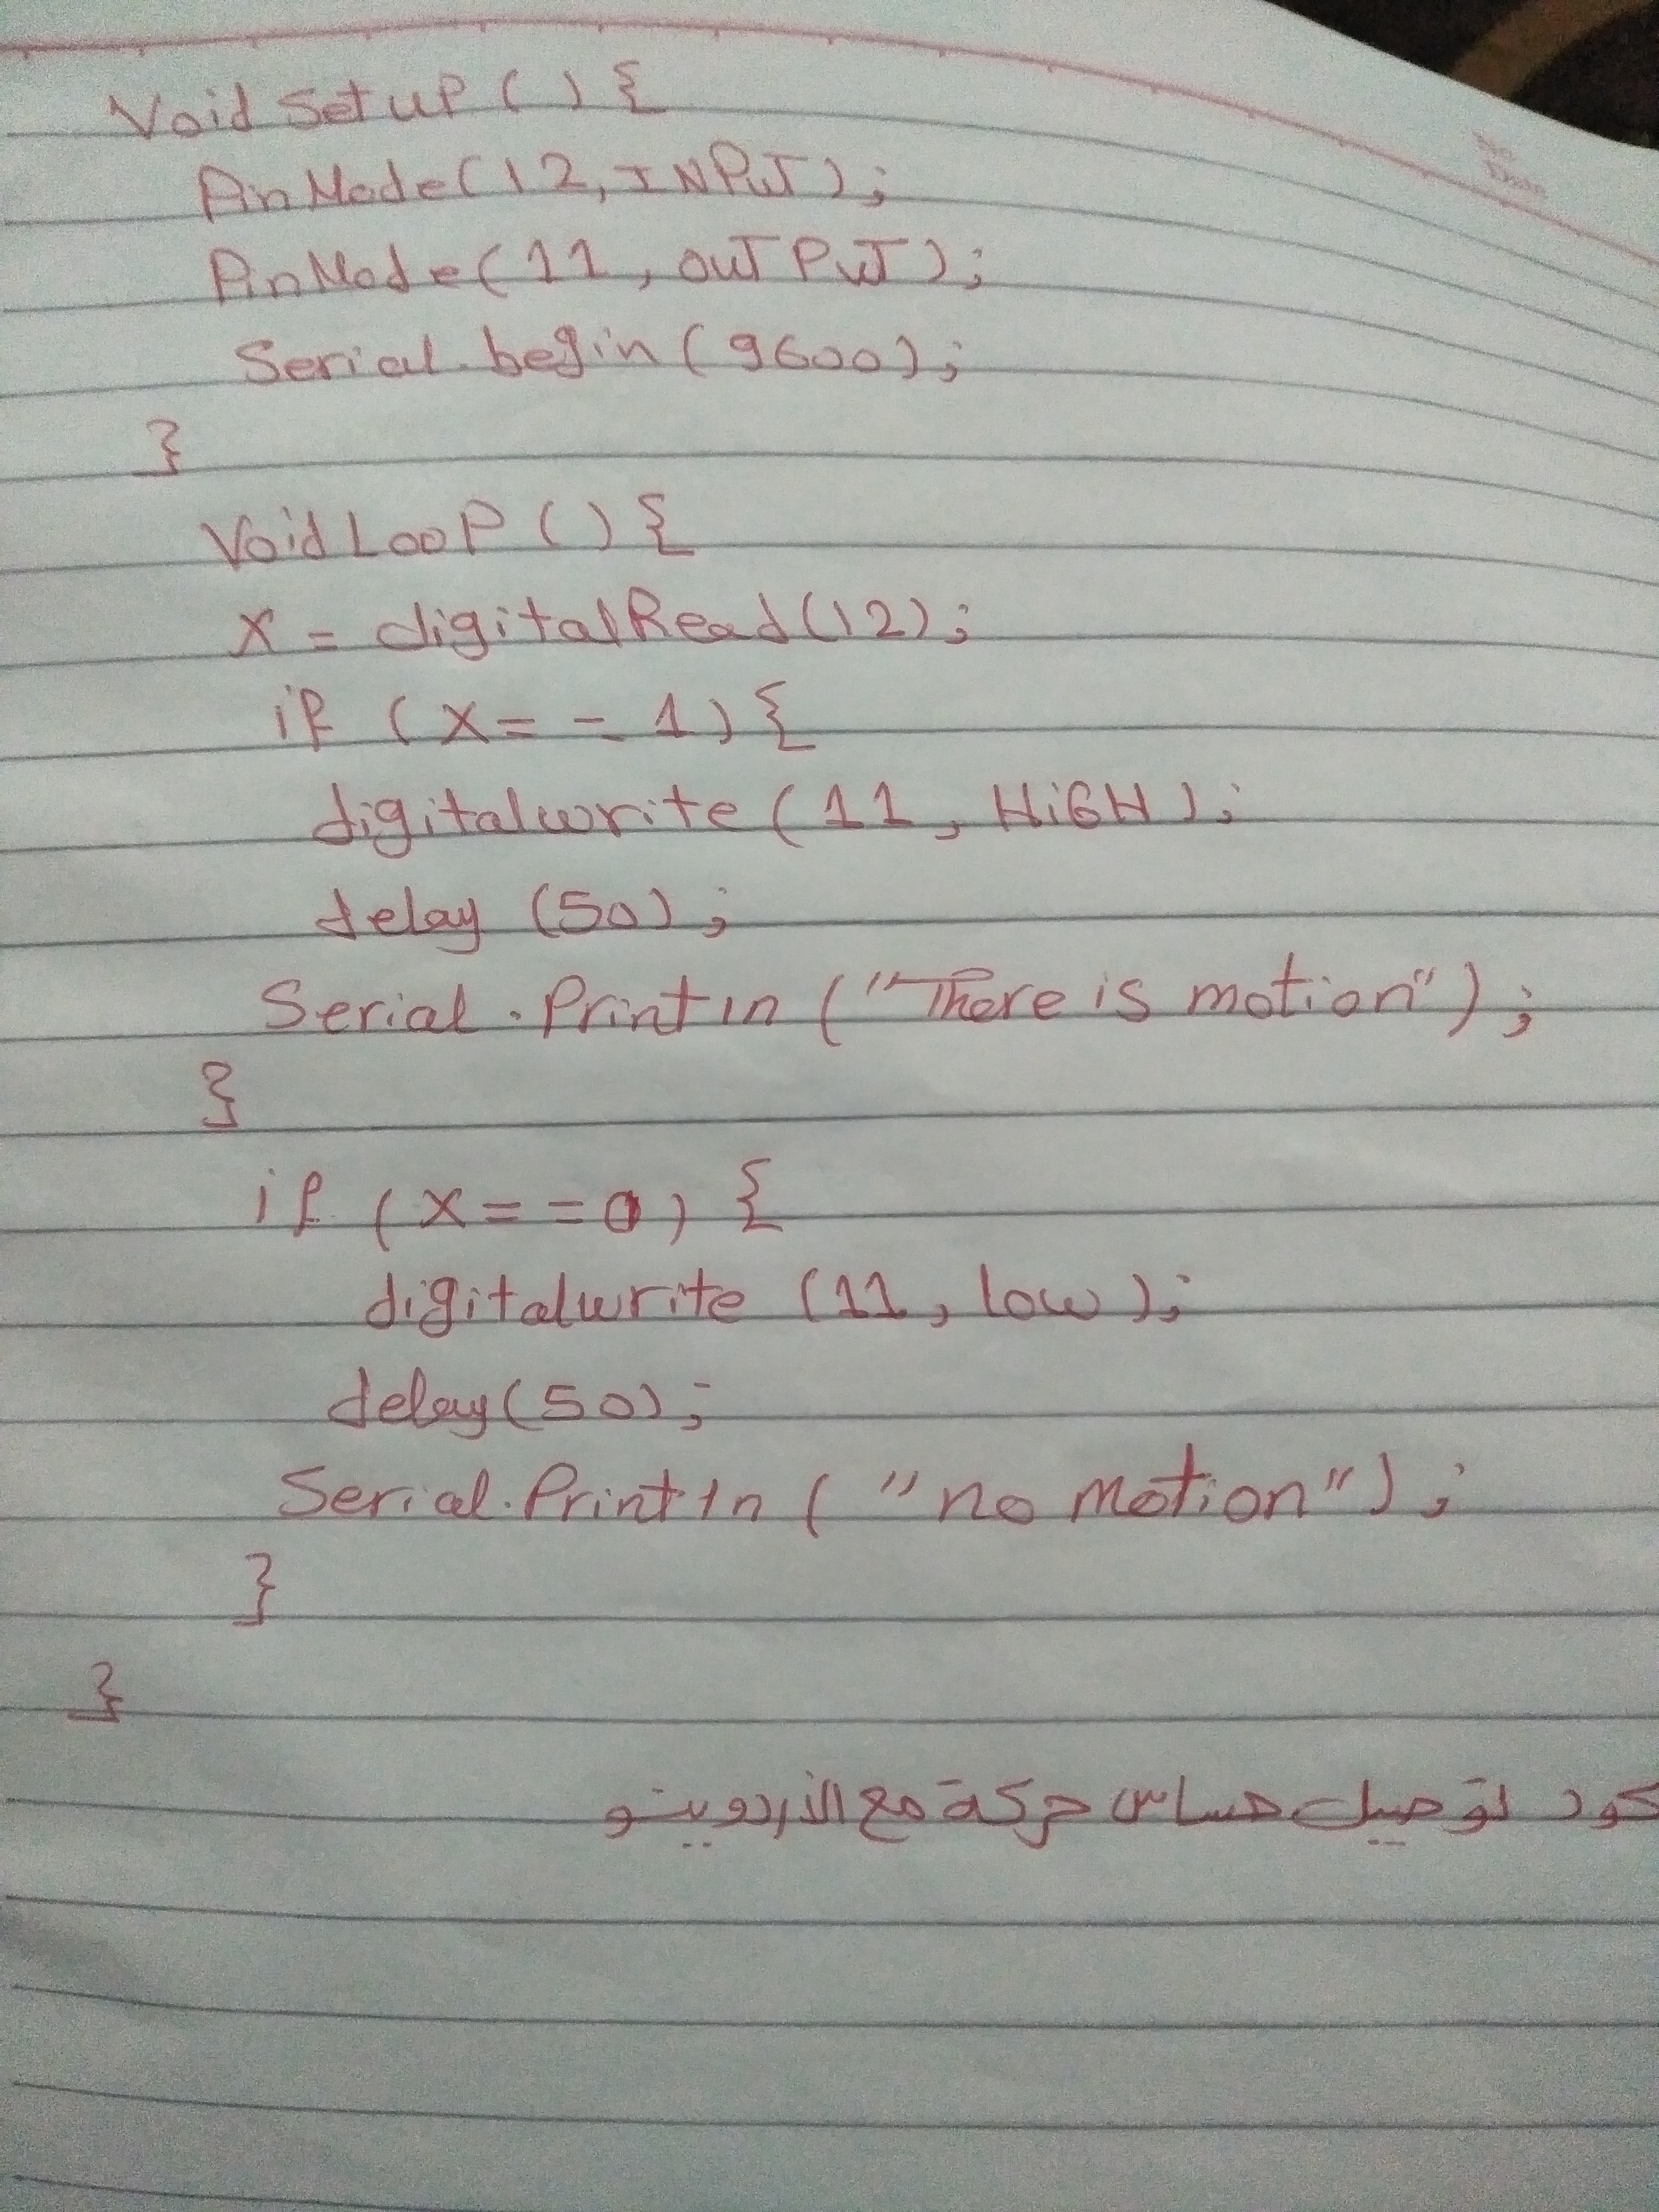 Void Setup ( ) {
PinMode(12, INPUT);
PinMode(11, outPuT);
Serial.begin(9600);
}
Void LooP ( ) {
x = digitalRead(12);
if (x== 1) {
digitalwrite (11, HiGH);
delay (50);
Serial.Println ("There is motion");
}
if (x==0) {
digitalwrite (11, low);
delay(50);
Serial.Println ("no motion");
}
}
كود توصيل حساس حركة مع الأردوينو